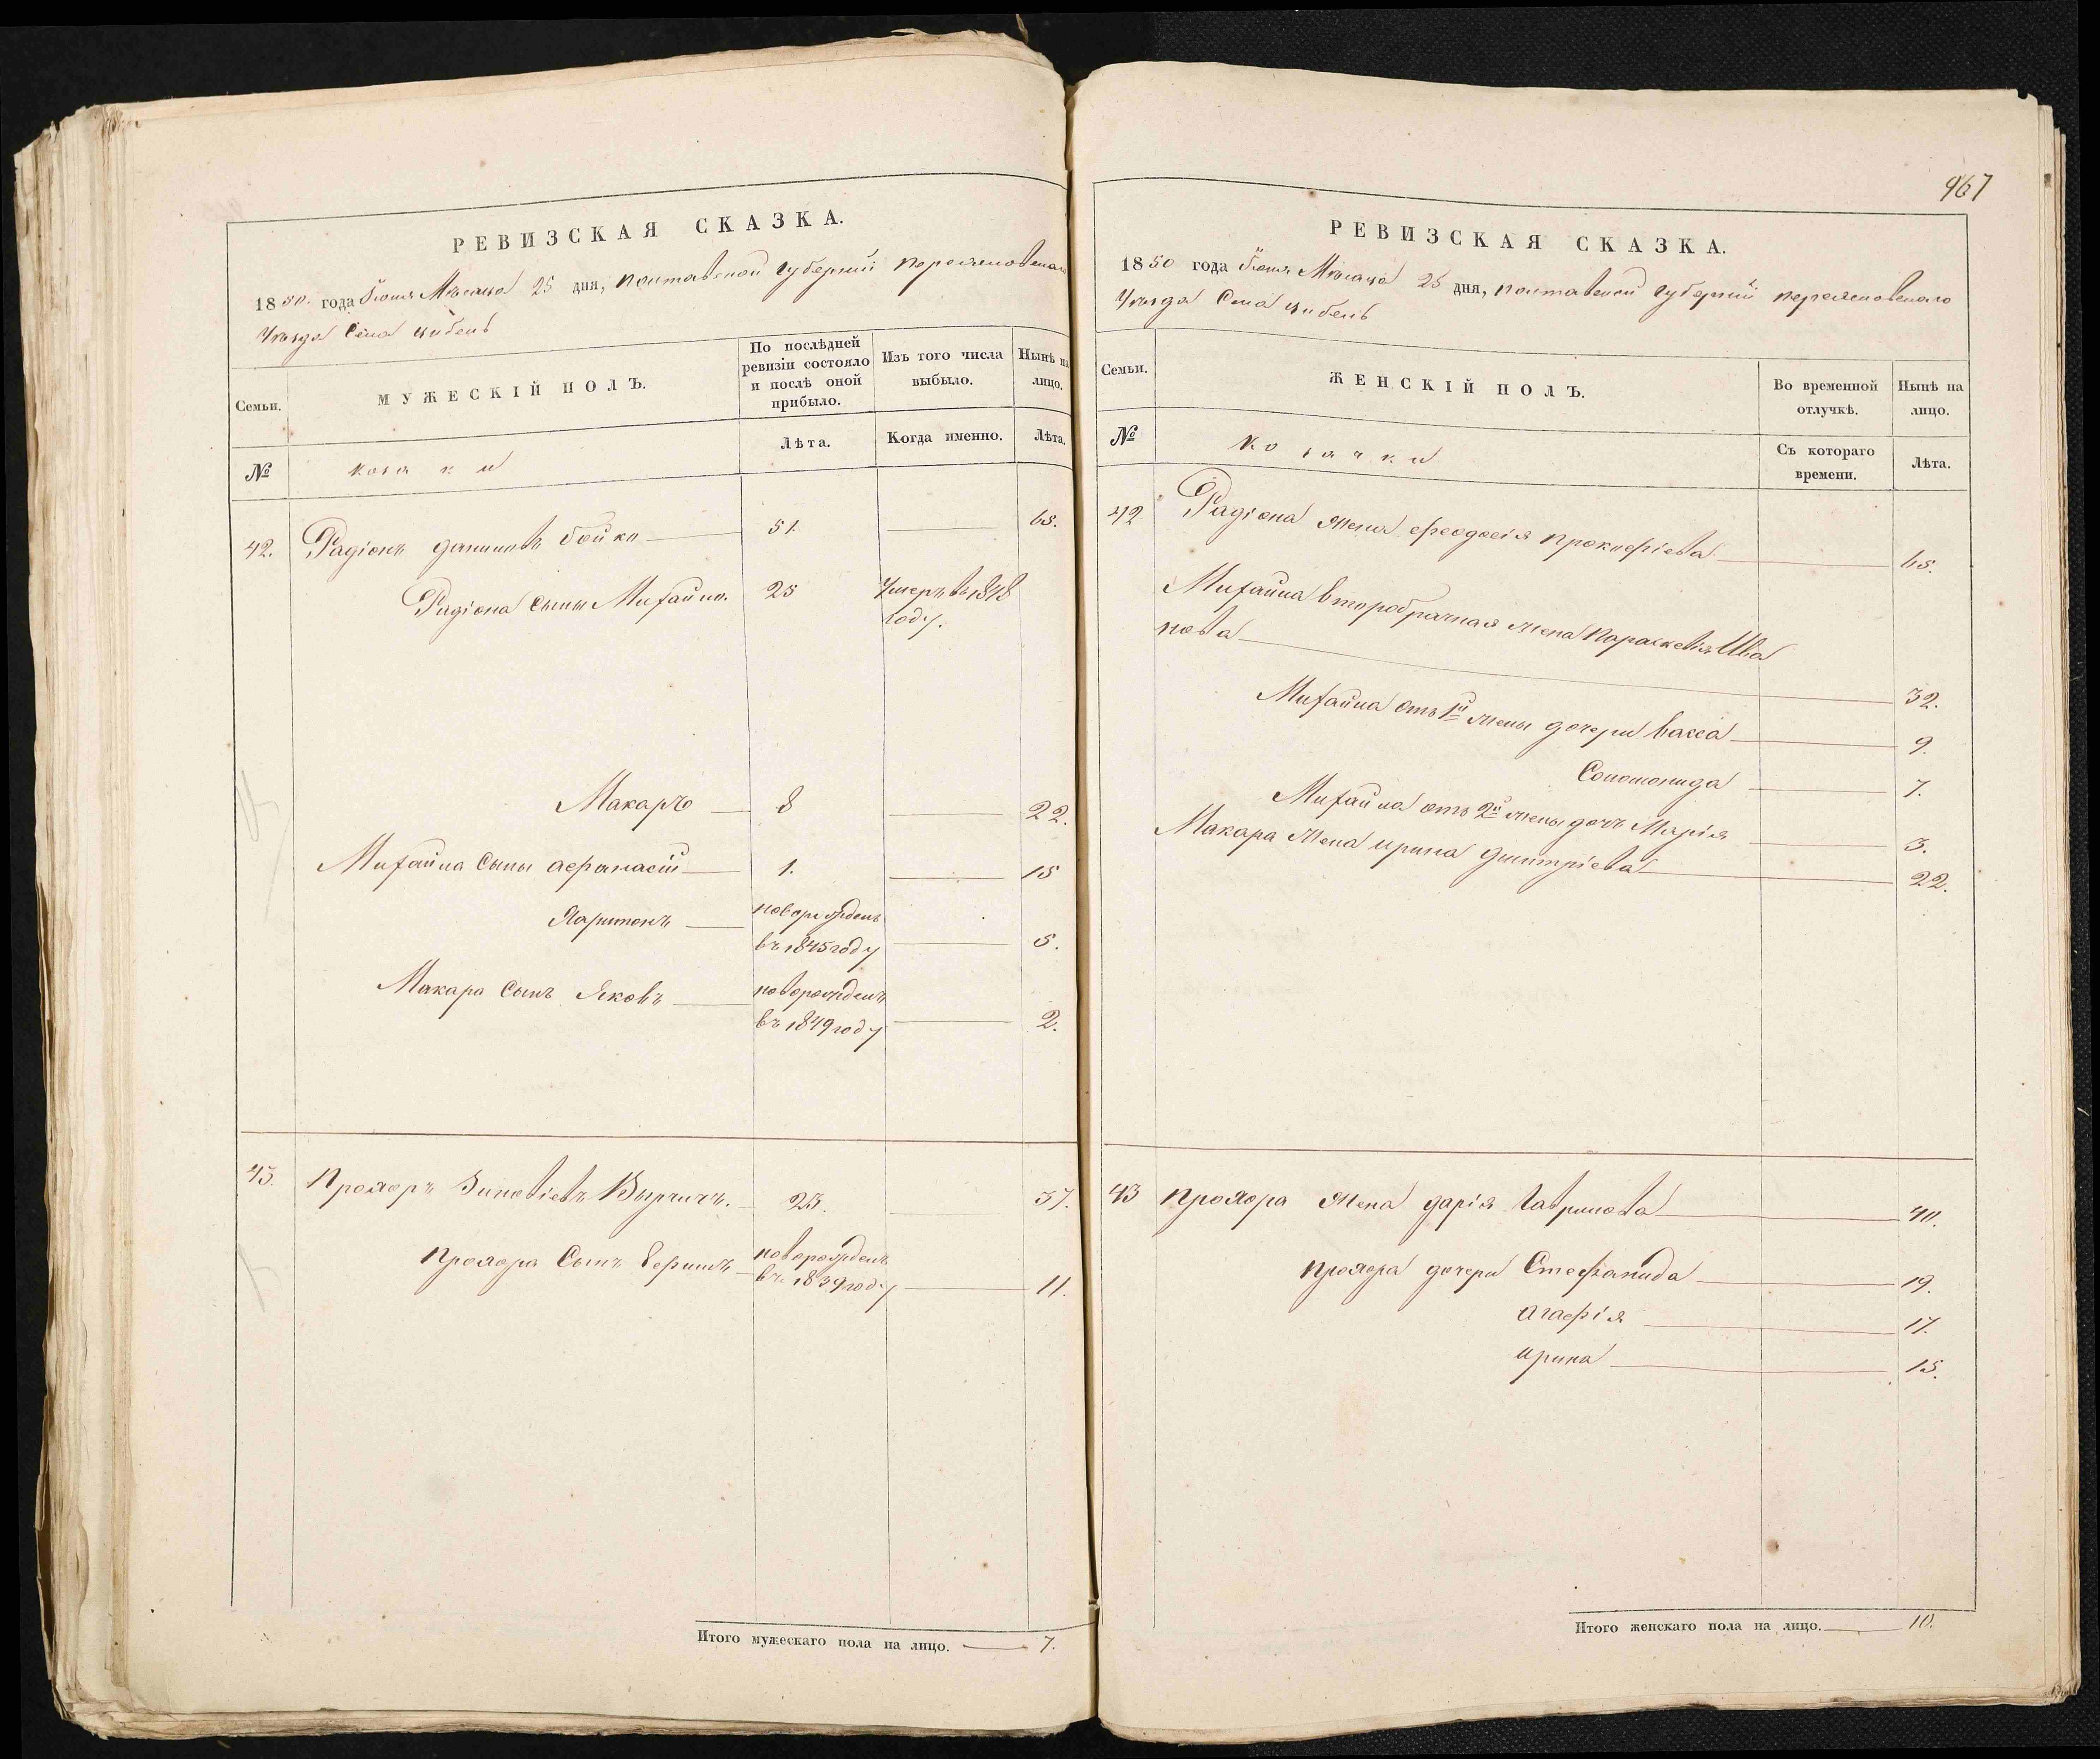 РЕВИЗСКАЯ СКАЗКА.
1850. года Іюня Мѣсяца 25 дня, Полтавской губерніи Переяславскаго
Уѣзда Села Цибель
Семьи.
МУЖЕСКІЙ ПОЛЪ.
По послѣдней ревизіи состояло и послѣ оной прибыло.
Изъ того числа выбыло.
Нынѣ на лицо.
Лѣта.
Когда именно.
Лѣта.
№
козаки
42. Радіонъ Даниловъ Бойко 51. 65.
Радіона сыны Михайло. 25 Умеръ въ 1848
году.
Макаръ 8 22.
Михайла Сыны Афанасій 1. 15
Харитонъ новорожденъ
въ 1845 году 5.
Макара Сынъ Яковъ новорожденъ
въ 1849 году 2.
43. Прохоръ Зиновіевъ 23. 37.
Прохора Сынъ Ефимъ новорожденъ
въ 1839 году 11.
Итого мужескаго пола на лицо. 7.
967
РЕВИЗСКАЯ СКАЗКА.
1850 года Іюня Мѣсяца 25 дня, Полтавской губерніи Переяславскаго
Уѣзда Села Цибель
Семьи.
ЖЕНСКІЙ ПОЛЪ.
Во временной отлучкѣ.
Нынѣ на лицо.
№
козачки
Съ котораго времени.
Лѣта.
42 Радіона жена Феодосія Прокофіева 65.
Михайла второбрачная жена Параскевія Ива
нова 32.
Михайла отъ 1й жены дочери Васса 9.
Соломонида 7.
Михайла отъ 2й жены дочь Марія 3.
Макара жена Ирина Дмитріева 22.
43 Прохора жена Дарія Гаврилова 40.
Прохора дочери Стефанида 19.
Агафія 17.
Ирина 15.
Итого женскаго пола на лицо. 10.